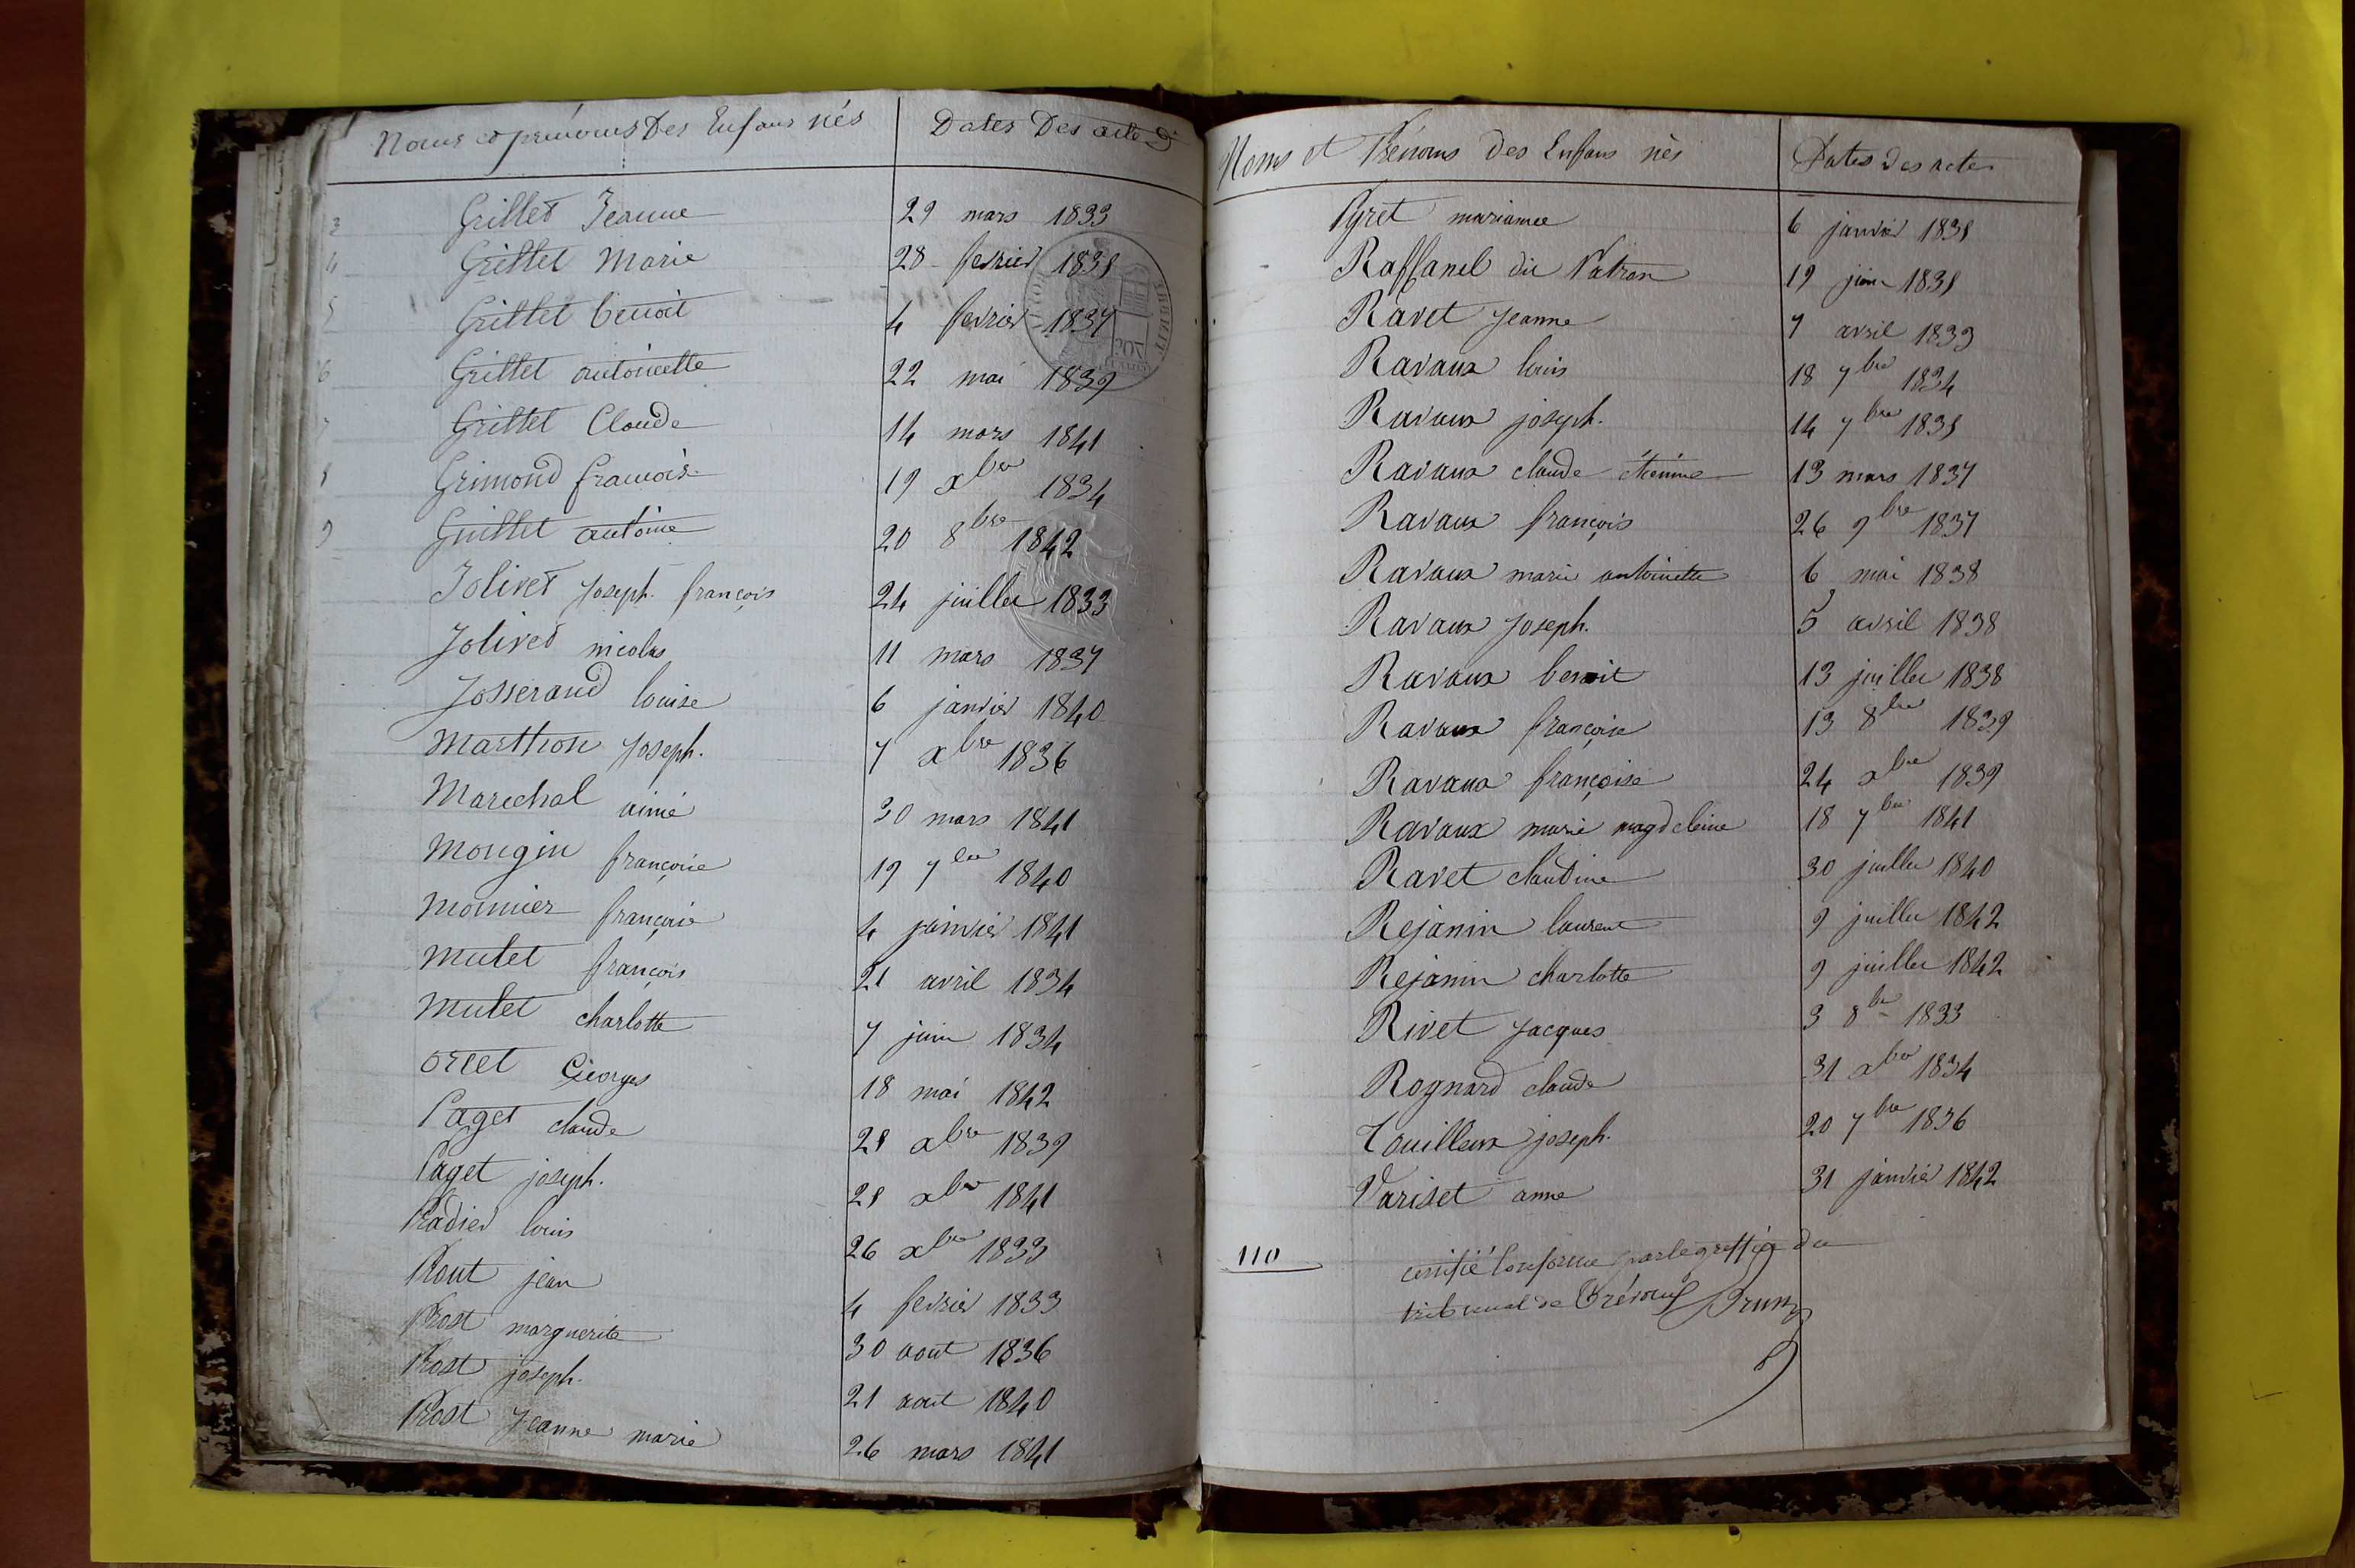 Noms et prenoms Des Enfans nés Dates Des actes
3 Grillet Jeanne 29 mars 1833
4 Grillet Marie 28 fevrier 1835
5 Grillet benoit 4 fevrier 1837
6 Grillet antoinette 22 mai 1839
7 Grillet Claude 14 mars 1841
8 Grimond francois 19 xbre 1834
9 Guillet antoine 20 8bre 1842
Jolivet Joseph françois 24 juillet 1833
Jolivet nicolas 11 mars 1837
Josserand louise 6 janvier 1840
Marthon Joseph. 7 xbre 1836
Marechal aimé 30 mars 1841
Mongin françoise 19 7bre 1840
Monnier françoise 4 janvier 1841
Mulet françois 21 avril 1834
Mulet charlotte 7 juin 1834
Orcet Georges 18 mai 1842
Paget claude 28 xbre 1839
Paget joseph. 28 xbre 1841
Pradier louis 26 xbre 1833
Prout jean 4 fevrier 1833
Prost marguerite 30 aout 1836
Prost joseph. 21 aout 1840
Prost Jeanne marie 26 mars 1841
Noms et Prénoms des Enfans nés Dates des actes
Pyret marianne 6 janvier 1835
Raffanel dit Patron 19 juin 1835
Ravet Jeanne 7 avril 1833
Ravaux louis 18 7bre 1834
Ravaux joseph. 14 7bre 1835
Ravaux claude étienne 13 mars 1837
Ravaux françois 26 9bre 1837
Ravaux marie antoinette 6 mai 1838
Ravaux Joseph. 5 avril 1838
Ravaux benoit 13 juillet 1838
Ravaux françoise 13 8bre 1839
Ravaux françoise 24 xbre 1839
Ravaux marie magdeleine 18 7bre 1841
Ravet claudine 30 juillet 1840
Rejanin laurent 9 juillet 1842
Rejanin charlotte 9 juillet 1842
Rivet Jacques 3 8bre 1833
Rognard claude 31 xbre 1834
Touilleux joseph. 20 7bre 1836
Variset anne 31 janvier 1842
110 certifié conforme par le greffier du
tribunal de Trévoux